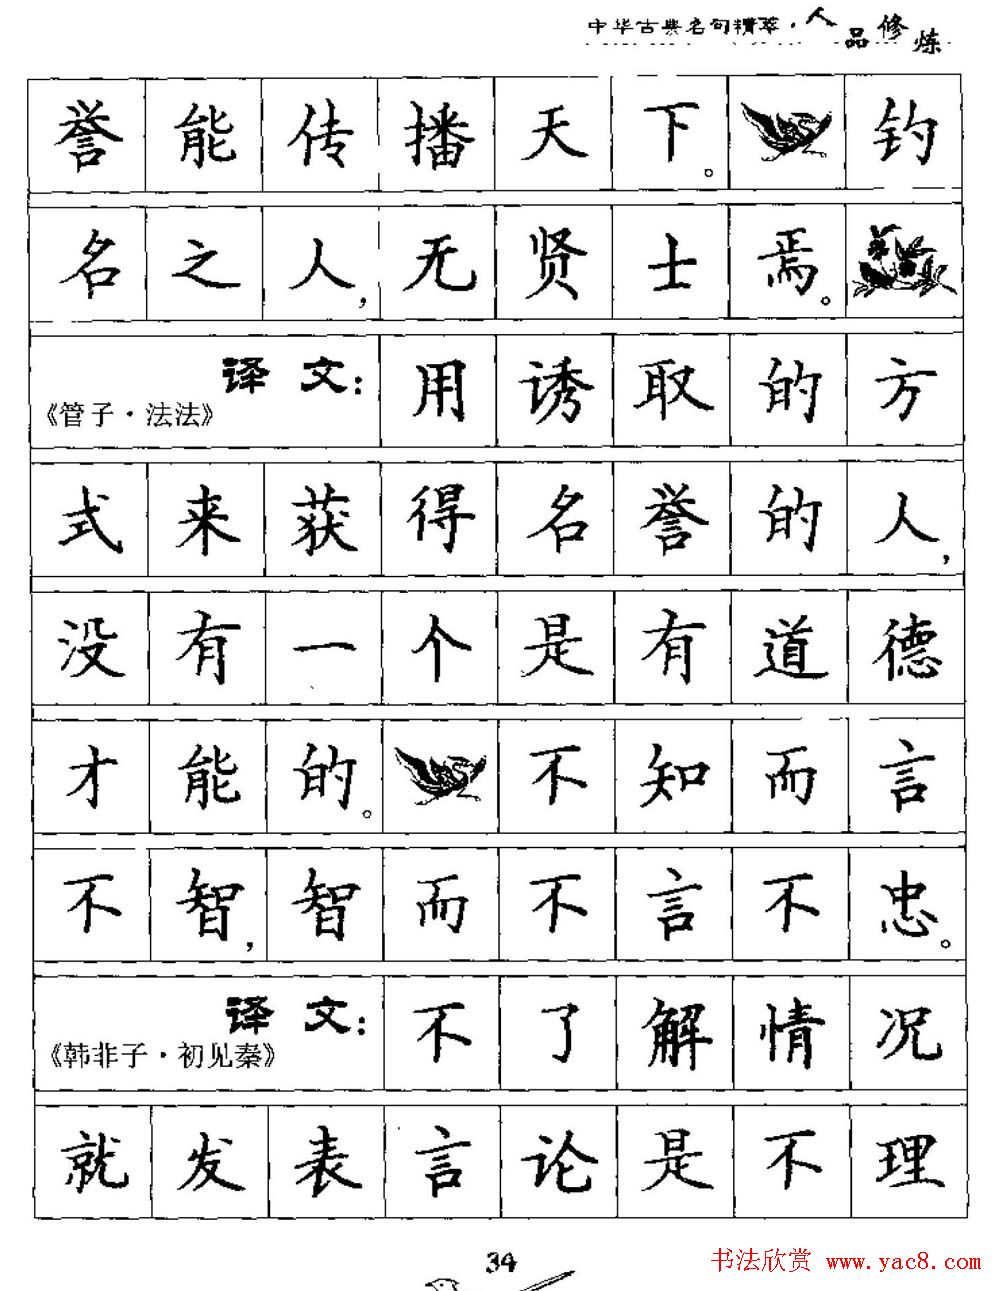 中华古典名句精萃·人品修炼
誉能传播天下。钓
名之人，无贤士焉。
译文：用诱取的方
《管子·法法》
式来获得名誉的人，
没有一个是有道德
才能的。不知而言
不智，智而不言不忠。
译文：不了解情况
《韩非子·初见秦》
就发表言论是不理
34
书法欣赏 www.yac8.com